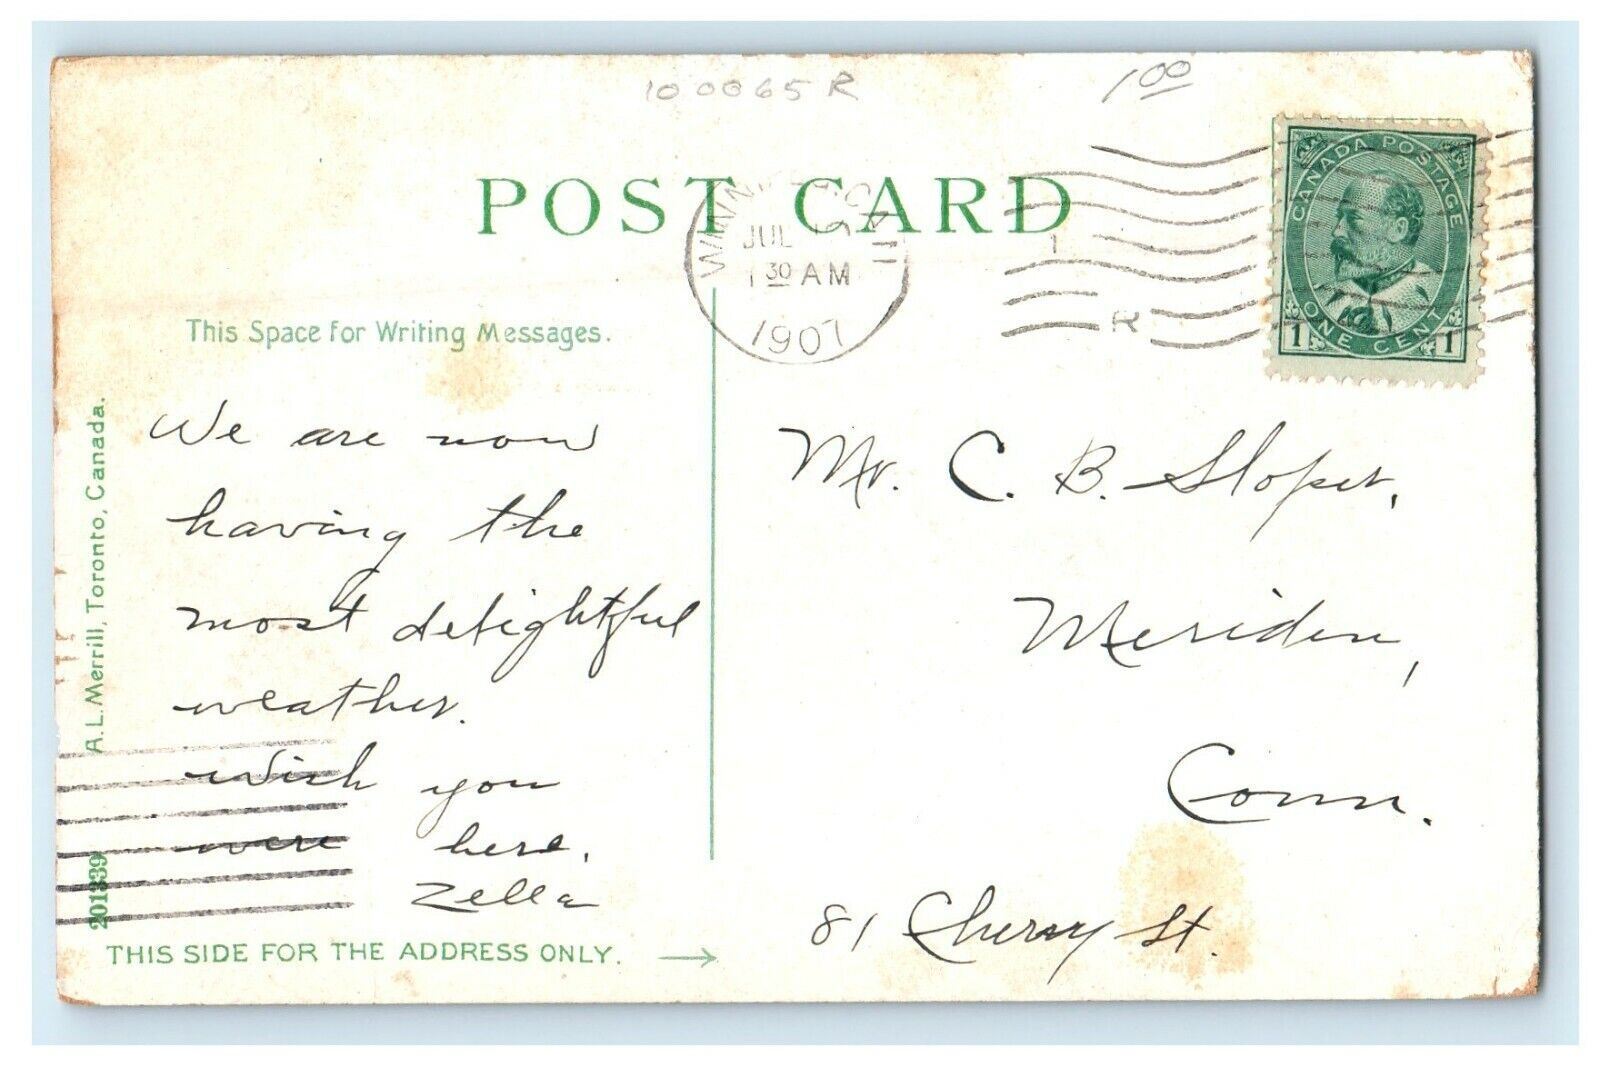 100065R
1.00
POST CARD
CANADA POSTAGE
ONE CENT
1 1
JUL
1 30 AM
1907
1
R
This Space for Writing Messages.
We are now
having the
most delightful
weather.
Wish you
were here.
Zella
Mr. C. B. Sloper,
Meriden,
Conn.
81 Cherry St.
A. L. Merrill, Toronto, Canada.
201339
THIS SIDE FOR THE ADDRESS ONLY.